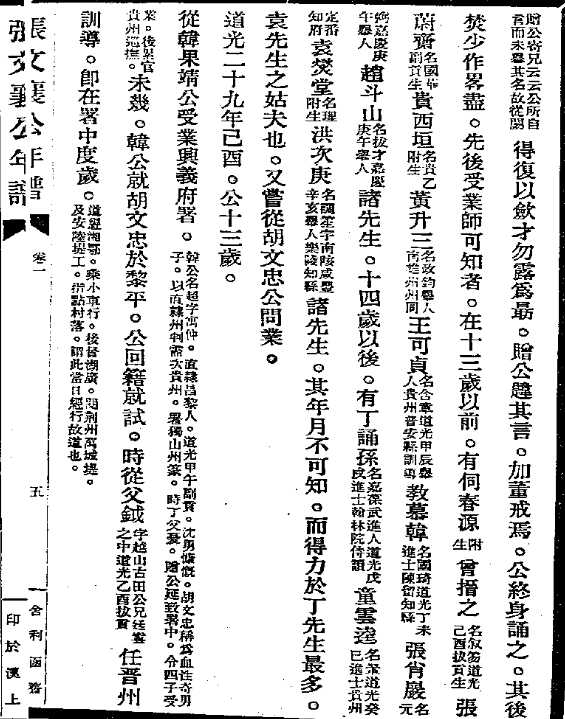 贈公寄兄云云公所自
言而未舉其名故從闕
得復以斂才勿露爲勗。贈公韙其言。加董戒焉。公終身誦之。其後
焚少作畧盡。先後受業師可知者。在十三歲以前。有伺春源附生曾搢之名叙笏道光己酉拔貢生張
蔚齋名國華副貢生貴西垣名貴乙附生黃升三名政鈞舉人南雄州州同王可貞名含章道光甲辰舉人貴州普安縣訓導敖慕韓名國琦道光丁未進士陳留知縣張肖巖名元
嘉慶庚午舉人趙斗山名拔才嘉慶庚午舉人諸先生。十四歲以後。有丁誦孫名嘉葆武進人道光戊戌進士翰林院侍讀童雲逵名翬道光癸巳進士貴州
定番知府袁燮堂名理附生洪次庚名調笙寧南陵咸豐辛亥舉人樂陵知縣諸先生。其年月不可知。而得力於丁先生最多。
袁先生之姑夫也。又嘗從胡文忠公問業。
道光二十九年己酉。公十三歲。
從韓果靖公受業興義府署。韓公名超字寓仲。直隸昌黎人。道光甲午副貢。沈勇慷慨。胡文忠稱爲血性奇男子。以直隸州判需次貴州。署獨山州篆。時丁父憂。贈公延致署中。令四子受
業。後累官貴州巡撫。未幾。韓公就胡文忠於黎平。公回籍就試。時從父鉞字越山古田公兄廷琛之中道光乙酉拔貢任晋州
訓導。卽在署中度歲。道經湘鄂。乘小車行。後督湖廣。閱荆州萬城堤。及安陸堤工。指點村落。謂此當日經行故道也。
張文襄公年譜
卷一
五
舍利函齋
印於漢上